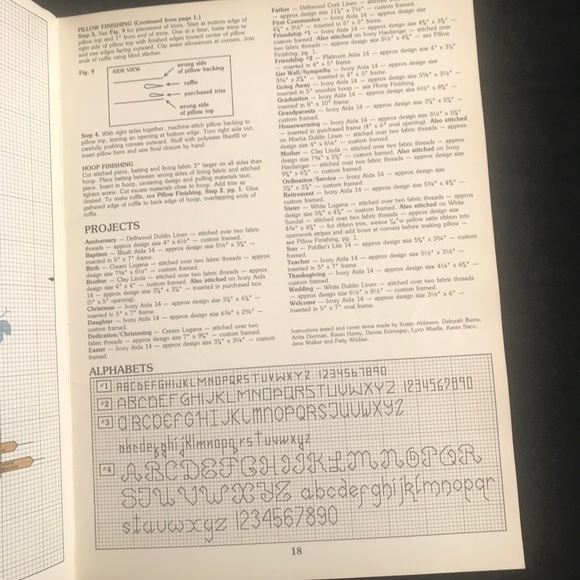 PILLOW FINISHING (Continued from page 1.)
Step 3. See Fig. 9 for placement of trims. Start at bottom edge of
pillow top and 1" from end of trims. One at a time, baste trims to
right side of pillow top with finished edges toward center of pillow
and raw edges facing outward. Clip seam allowances at corners. Join
ends of ruffle using blind stitches.
Fig. 9
SIDE VIEW
wrong side
of pillow backing
ruffle
purchased trim
wrong side
of pillow top
Step 4. With right sides together, machine stitch pillow backing to
pillow top, leaving an opening at bottom edge. Turn right side out,
carefully pushing corners outward. Stuff with polyester fiberfill or
insert pillow form and sew final closure by hand.
HOOP FINISHING
Cut stitched piece, batting and lining fabric 3" larger on all sides than
hoop. Place batting between wrong sides of lining fabric and stitched
piece. Insert in hoop, centering design and pulling materials taut.
tighten screw. Cut excess materials close to hoop. Add trim as
desired. To make ruffle, see Pillow Finishing, Step 2, pg. 1. Glue
gathered edge of ruffle to back edge of hoop, overlapping ends of
ruffle.
PROJECTS
Anniversary — Driftwood Dublin Linen — stitched over two fabric
threads — approx design size 4" x — custom framed.
Baptism — Blush Aida 14 — approx design size
inserted in 5" x 7" frame.
Birth — Cream Lugana — stitched over two fabric threads — approx
design size — custom framed.
Brother — Clay Linda — stitched over two fabric threads — approx
design size 4" x 4" — custom framed. Also stitched on Ivory Aida
14 — approx design size — inserted in purchased box
(5" x 5" opening).
Christmas — Ivory Aida 14 — approx design size
inserted in 5" x 7" frame.
Daughter — Ivory Aida 14 — approx design size
custom framed.
Dedication/Christening — Cream Lugana — stitched over two
fabric threads — approx design size — custom framed.
Easter — Ivory Aida 14 — approx design size — custom
framed.
Father — Driftwood Cork Linen — stitched
— approx design size — custom framed.
First Communion — Ivory Aida 14 — approx design size
— inserted in 5" x 5" frame.
Friendship #1 — Ivory Aida 14 — approx design size
custom framed. Also stitched on Ivory Hardanger — stitched over
two fabric threads — approx design size — see Pillow
Finishing, pg. 1.
Friendship #2 — Platinum Aida 14 — approx design size 4" x
— inserted in 5" x 5" frame.
Get Well/Sympathy — Ivory Aida 14 — approx design size
— inserted in 4" x 5" frame.
Going Away — Ivory Aida 14 — approx design size
inserted in 5" wooden hoop — see Hoop Finishing.
Graduation — Ivory Aida 14 — approx design size
inserted in 8" x 10" frame.
Grandparents — Ivory Aida 14 — approx design size
custom framed.
Housewarming — Ivory Aida 14 — approx design size
— inserted in purchase frame (4" x 6" oval opening). Also stitched
on Mocha Dublin Linen — stitched over two fabric threads — approx
design size 4" x — custom framed.
Mother — Clay Linda — stitched over two fabric threads — approx
design size — custom framed. Also stitched on Ivory
Hardanger — stitched over two fabric threads — approx design size
— custom framed.
Ordination/Service — Ivory Aida 14 — approx design size
— custom framed.
Retirement — Ivory Aida 14 — approx design size
custom framed.
Sister — White Lugana — stitched over two fabric threads — approx
design size — custom framed. Also stitched on White
Sundal — stitched over two fabric threads — approx design size
— for ribbon trim, weave wide yellow satin ribbon into
openwork stripes and add bows at corners before making pillow —
see Pillow Finishing, pg. 1.
Son — Fiddler's Lite 14 — approx design size
framed.
Teacher — Ivory Aida 14 — approx design size
inserted in 5" x 7" frame.
Thanksgiving — Ivory Aida 14 — approx design size
custom framed.
Wedding — White Dublin Linen — stitched over two fabric threads
— approx design size — custom framed.
Welcome — Ivory Aida 14 — approx design size
inserted in 5" x 7" oval frame.
Instructions tested and cover items made by Susan Alderson, Deborah Burns,
Anita Drennan, Karen Haney, Denise Romsgey, Lynn Muelle, Karen Sisco,
Jana Walker and Patty Winkler.
ALPHABETS
#1 ABCDEFGHIJKLMNOPQRSTUVWXYZ 1234567890
#2 ABCDEFGHIJKLMNOPQRSTUVWXYZ 1234567890
#3 ABCDEFGHIJKLMNOPQRSTUVWXYZ
abcdefghijklmnopqrstuvwxyz
#4 ABCDEFGHIJKLMNOPQR
STUVWXYZ abcdefghijklmnopqr
stuvwxyz 1234567890
18